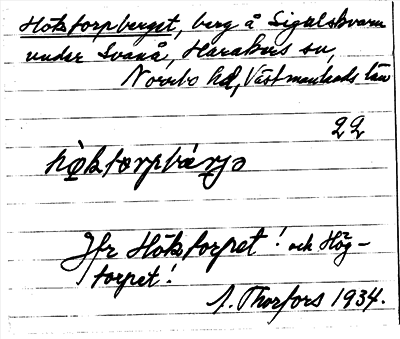 Hökstorpberget, berg å Sigelskvarn
under Svanå, Harakers sn,
Norrbo hd, Västmanlands län
22
hö̀kstorpbærjə
Jfr Hökstorpet! och Hög-
torpet!
A. Thorfors 1934.